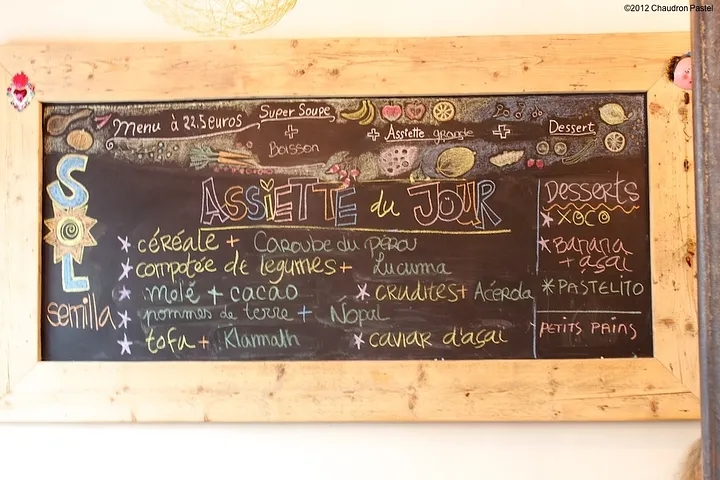 ©2012 Chaudron Pastel
Menu à 22.5 euros
Super Soupe
+
Boisson
+ Assiette grande +
Dessert
SOL
semilla
ASSIETTE du JOUR
céréale + Caroube du péru
compotée de légumes + Lucuma
molé + cacao
crudités + Acérola
pommes de terre + Nopal
tofu + Klamath
caviar d'açaï
Desserts
XOCO
Banana
+ açaï
PASTELITO
PETITS PAINS